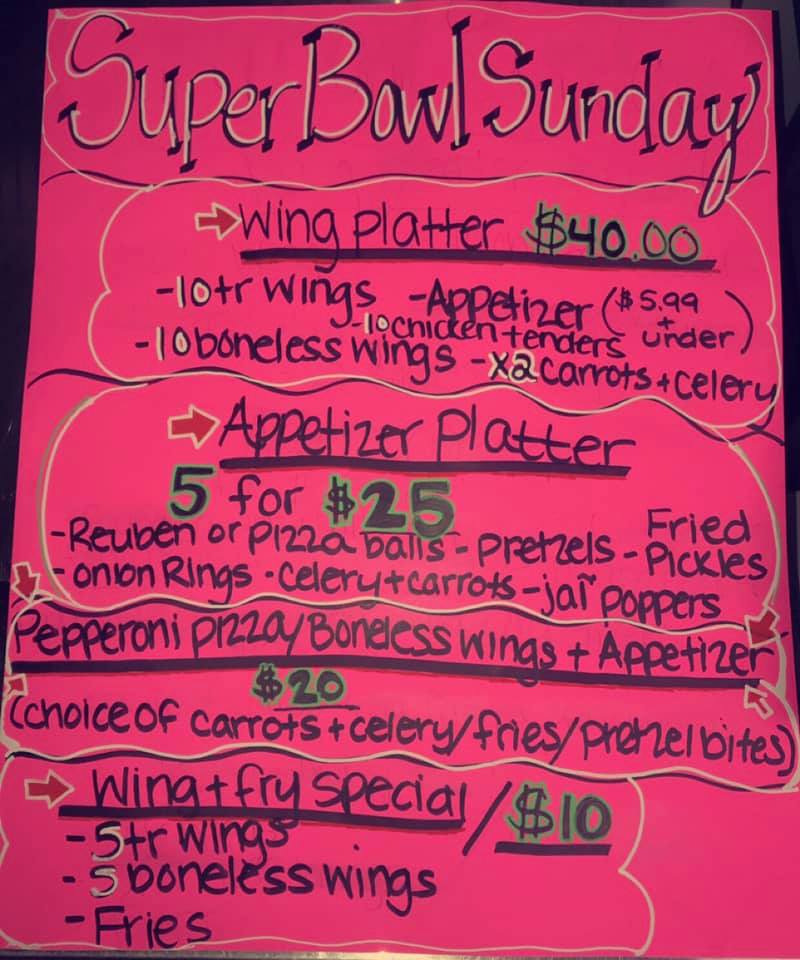 Super Bowl Sunday
Wing Platter $40.00
-10 tr wings -Appetizer ($5.99 + under)
-10 chicken tenders
-10 boneless wings -x2 carrots + celery
Appetizer Platter
5 for $25
-Reuben or Pizza balls - Pretzels - Fried Pickles
-Onion Rings -celery + carrots -jal poppers
Pepperoni pizza/Boneless wings + Appetizer
$20
(choice of carrots + celery/fries/pretzel bites)
Wing + fry special / $10
-5 tr wings
-5 boneless wings
-Fries